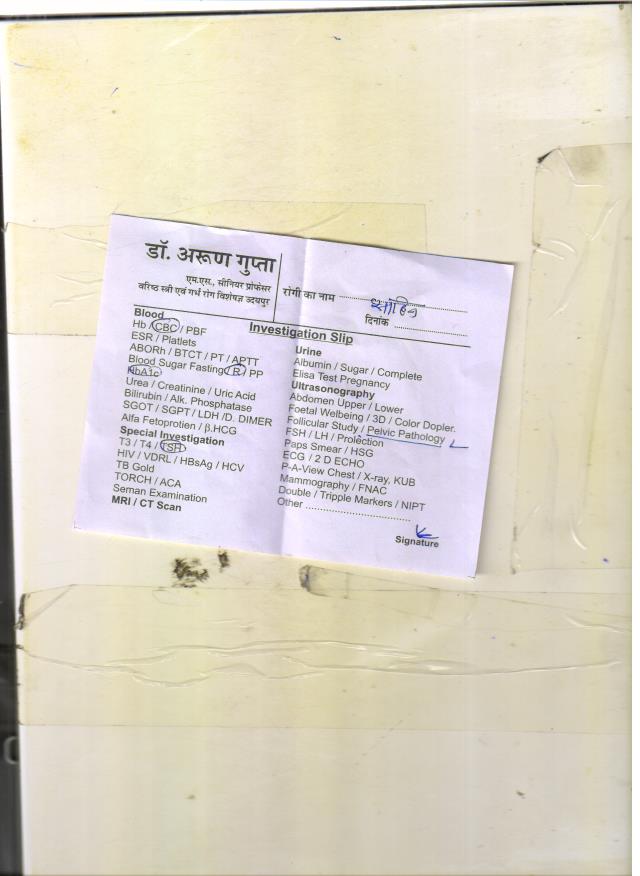 डॉ. अरूण गुप्ता
एम.एस., सीनियर प्रोफेसर
वरिष्ठ स्त्री एवं गर्भ रोग विशेषज्ञ उदयपुर
रांगी का नाम ....................
दिनांक ....................
Investigation Slip
Blood
Hb / CBC / PBF
ESR / Platlets
ABORh / BTCT / PT / APTT
Blood Sugar Fasting / R / PP
HbA1c
Urea / Creatinine / Uric Acid
Bilirubin / Alk. Phosphatase
SGOT / SGPT / LDH /D. DIMER
Alfa Fetoprotien / β.HCG
Special Investigation
T3 / T4 / TSH
HIV / VDRL / HBsAg / HCV
TB Gold
TORCH / ACA
Seman Examination
MRI / CT Scan
Urine
Albumin / Sugar / Complete
Elisa Test Pregnancy
Ultrasonography
Abdomen Upper / Lower
Foetal Welbeing / 3D / Color Dopler.
Follicular Study / Pelvic Pathology
FSH / LH / Prolection
Paps Smear / HSG
ECG / 2 D ECHO
P-A-View Chest / X-ray, KUB
Mammography / FNAC
Double / Tripple Markers / NIPT
Other ..............................
Signature